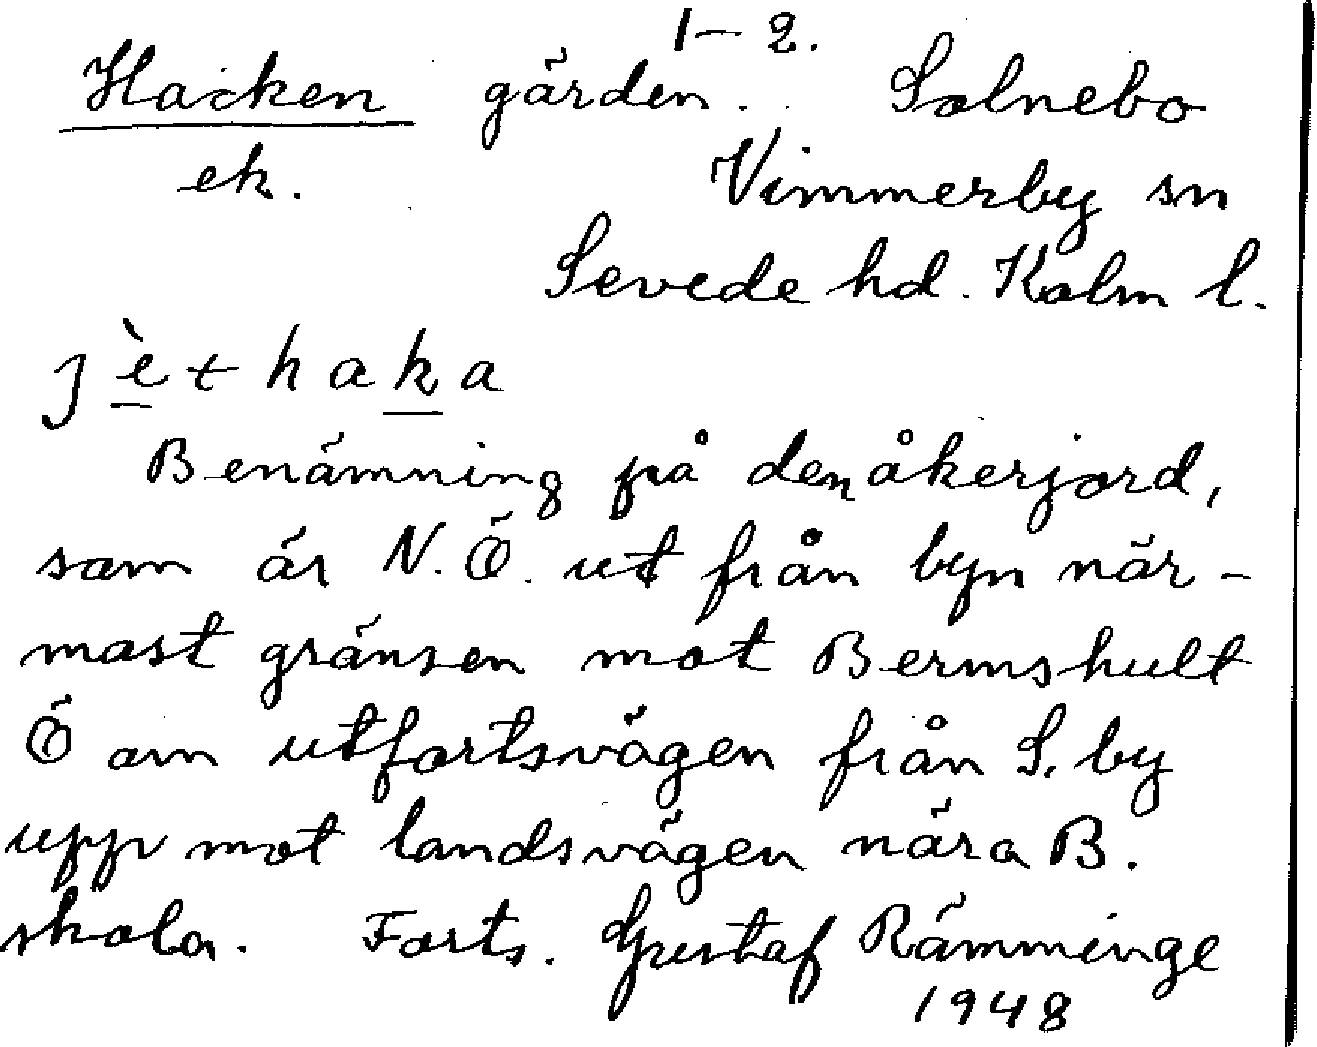 1-2.
Hacken gärden. Solnebo
ek. Vimmerby sn
Sevede hd. Kalm l.
jèthaka
Benämning på den åkerjord,
som är N.Ö. ut från byn när-
mast gränsen mot Bermshult
Ö om utfartsvägen från S. by
upp mot landsvägen nära B.
skola. Forts. Gustaf Rämminge
1948